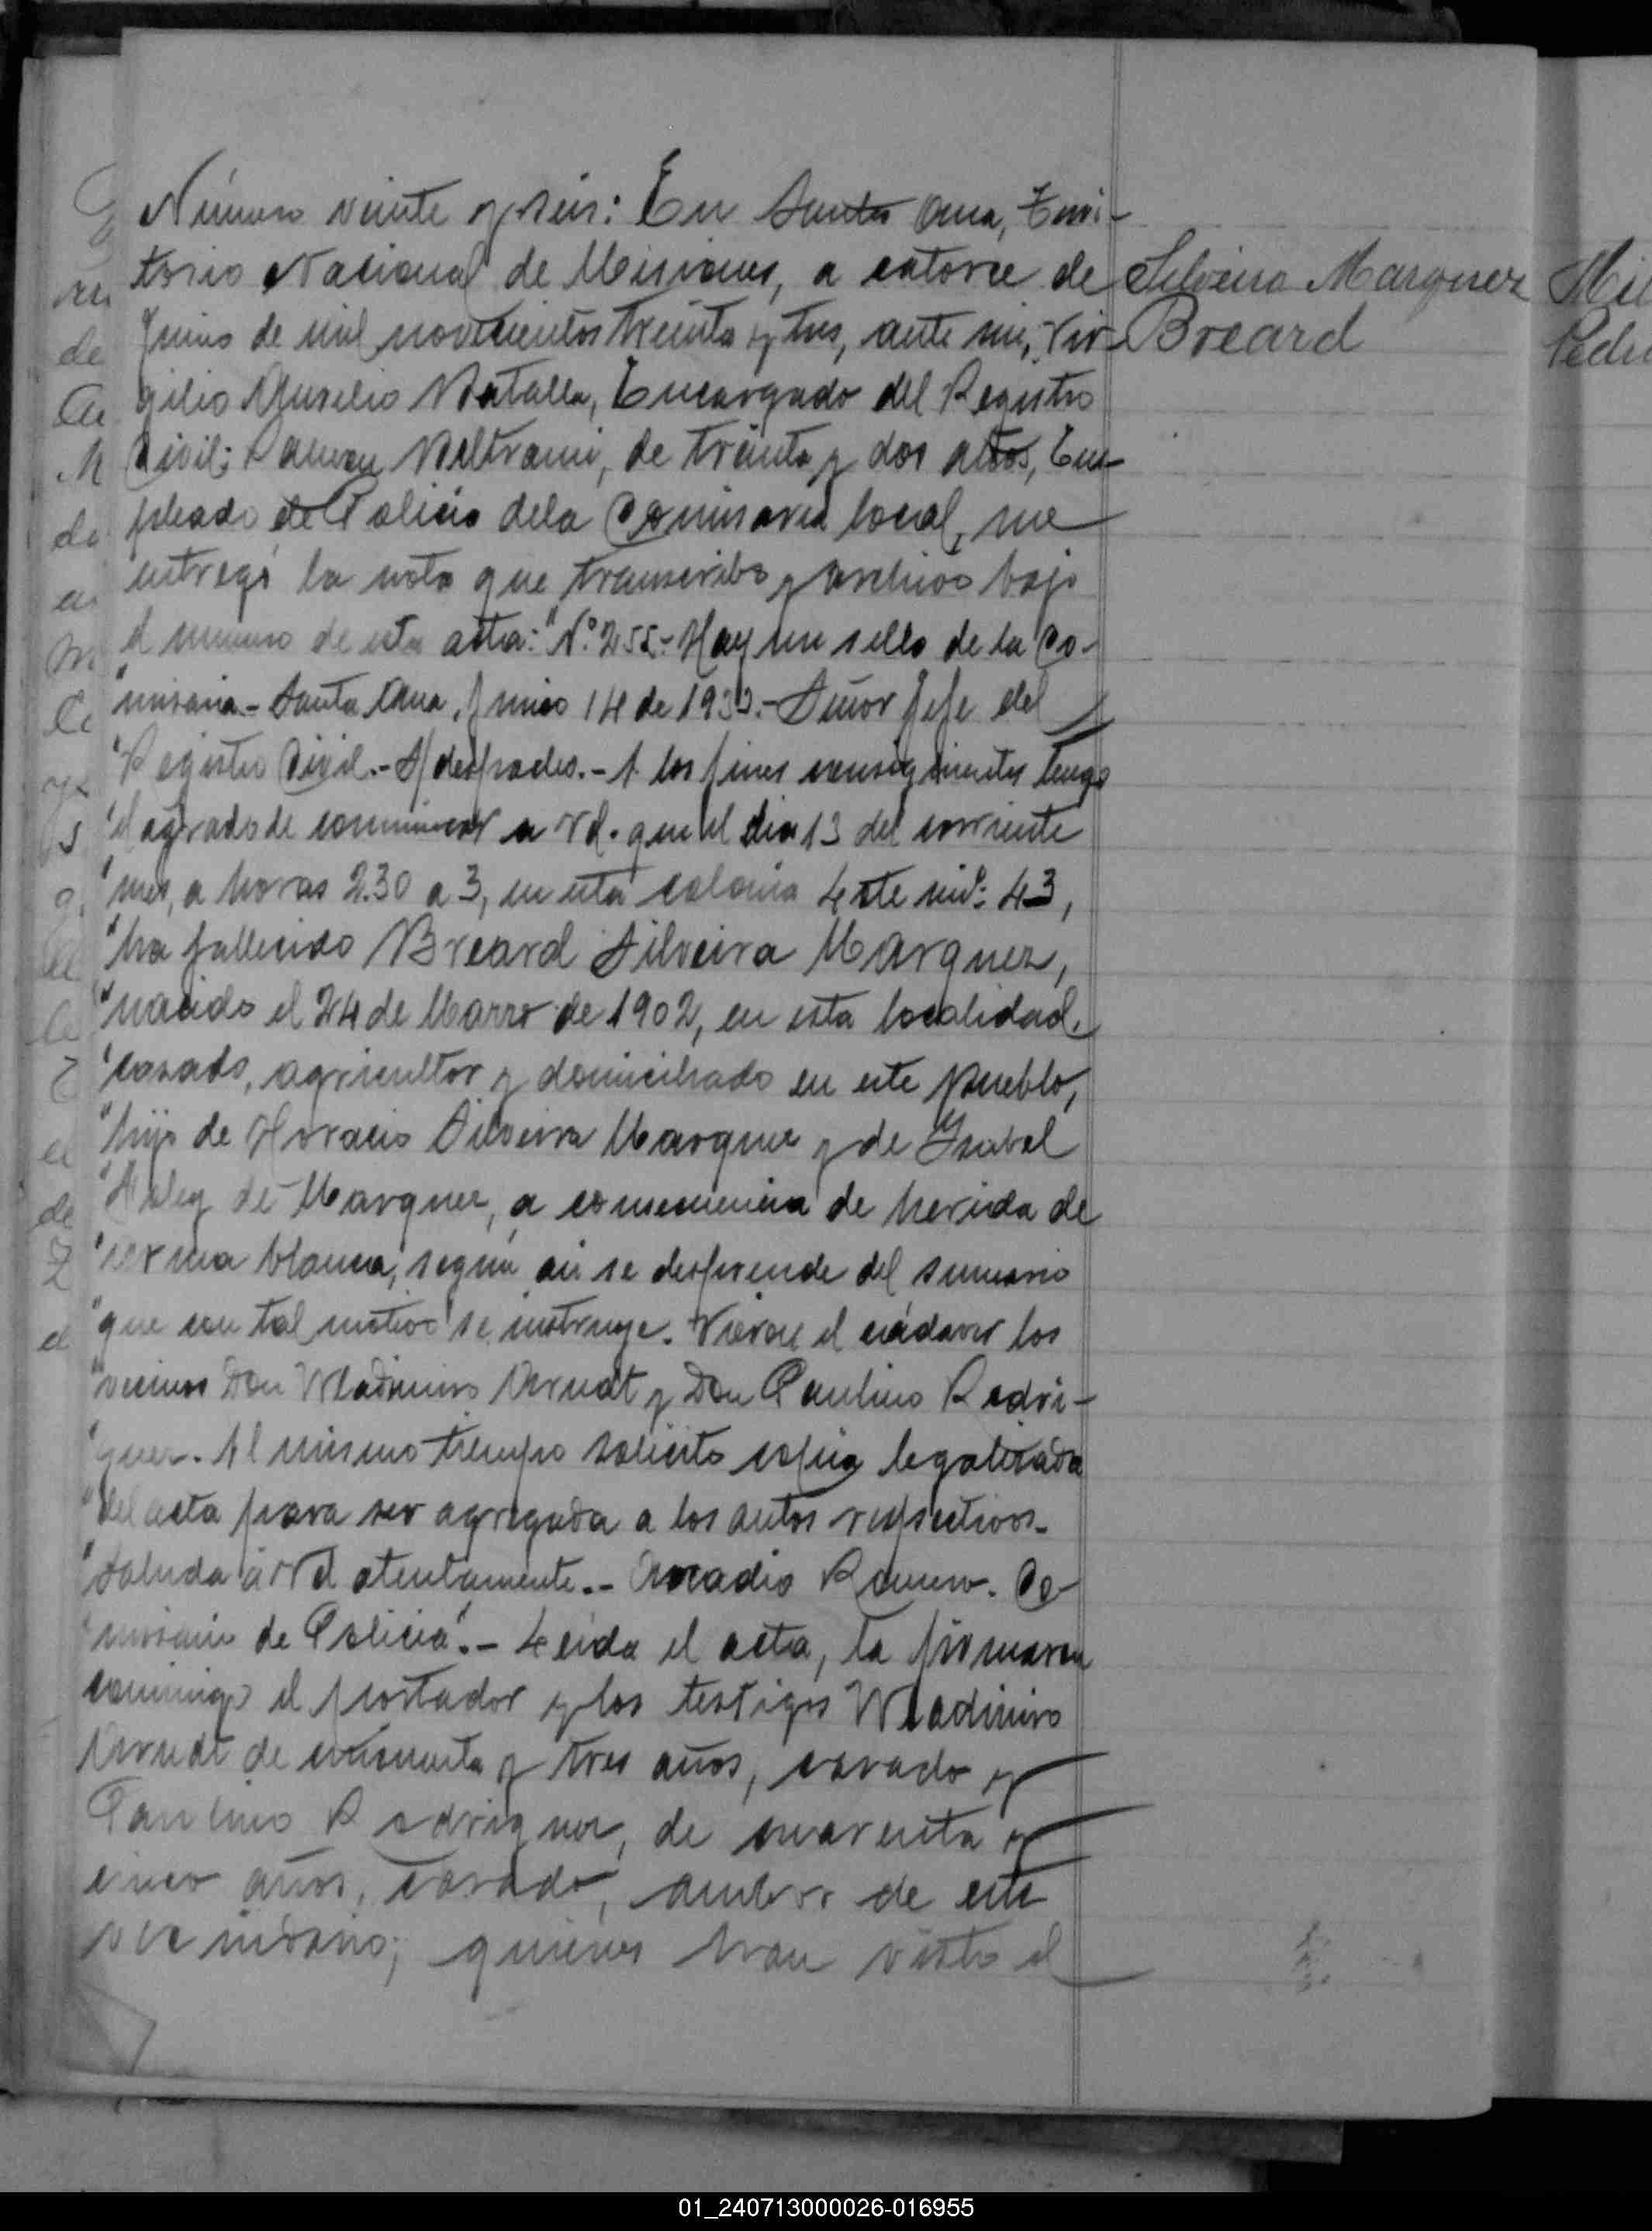 Número veinte y seis: En Santa Ana, Terri-
torio Nacional de Misiones, a catorce de
Junio de mil novecientos treinta y tres, ante mi, Vir-
gilio Aurelio Batalla, Encargado del Registro
Civil; Ramon Beltrami, de treinta y dos años, Em-
pleado de Policia dela Comisaria local, me
entregó la nota que transcribo y archivo bajo
el numero de esta acta: "Nº 255.- Hay un sello de la Co-
"misaria - Santa Ana, Junio 14 de 1933.- Señor Jefe del
"Registro Civil.- S/despacho.- A los fines consiguientes tengo
"el agrado de comunicar a Vd. que el dia 13 del corriente
"mes, a horas 2.30 a 3, en esta colonia Lote 43,
"ha fallecido Breard Silveira Marquez,
"nacido el 24 de Marzo de 1902, en esta localidad,
"casado, agricultor y domiciliado en este Pueblo,
"hijo de Horacio Silveira Marquez y de Isabel
"de Marquez, a consecuencia de herida de
"arma blanca, según asi se desprende del sumario
"que con tal motivo se instruye. Vieron el cádaver los
"vecinos Don Wladimiro Arndt y Don Paulino Rodri-
"guez. Al mismo tiempo solicito copia legalizada
"del acta para ser agregada a los autos respectivos.
"Saluda a Vd atentamente.- Arcadio Romero. Co-
"misario de Policia".- Leida el acta, la firmaron
conmigo el portador y los testigos Wladimiro
Arndt de cincuenta y tres años, casado y
Paulino Rodriguez, de cuarenta y
cinco años, casado, ambos de este
vecindario; quienes han visto el
Silveira Marquez
Breard
01_240713000026-016955